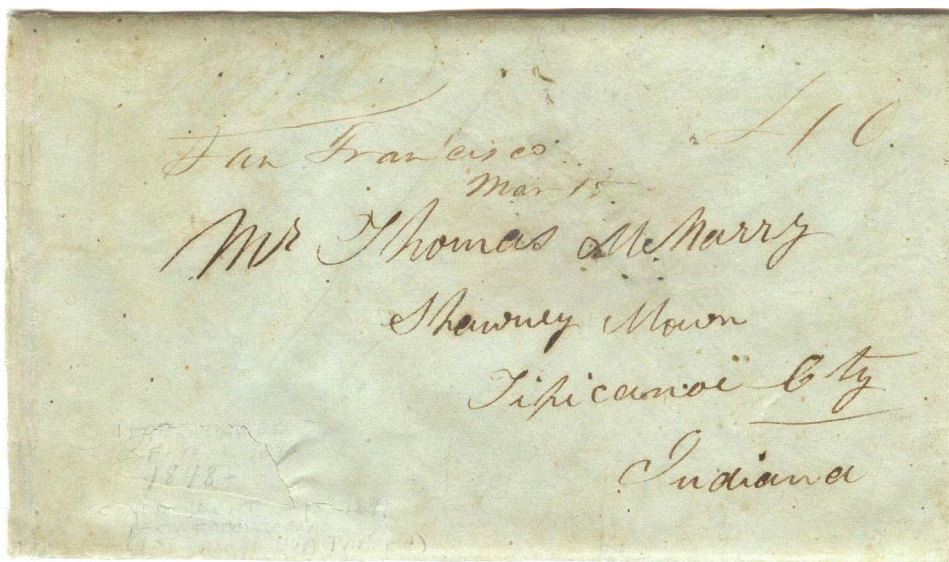 San Francisco
Mar 15
40
Mr Thomas McMarry
Shawney Mown
Tipicanoe Cty
Indiana
1848-